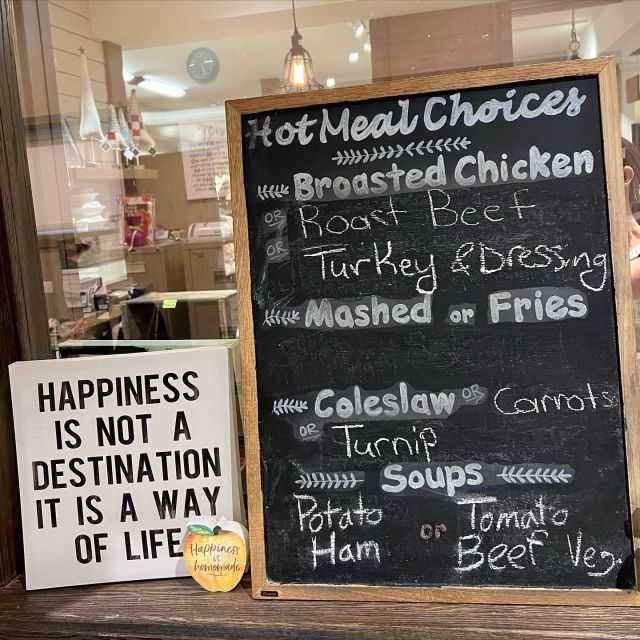 Hot Meal Choices
Broasted Chicken
OR Roast Beef
OR Turkey & Dressing
Mashed or Fries
Coleslaw OR Carrots
OR Turnip
Soups
Potato Ham or Tomato Beef Veg
HAPPINESS
IS NOT A
DESTINATION
IT IS A WAY
OF LIFE
Happiness
is
homemade